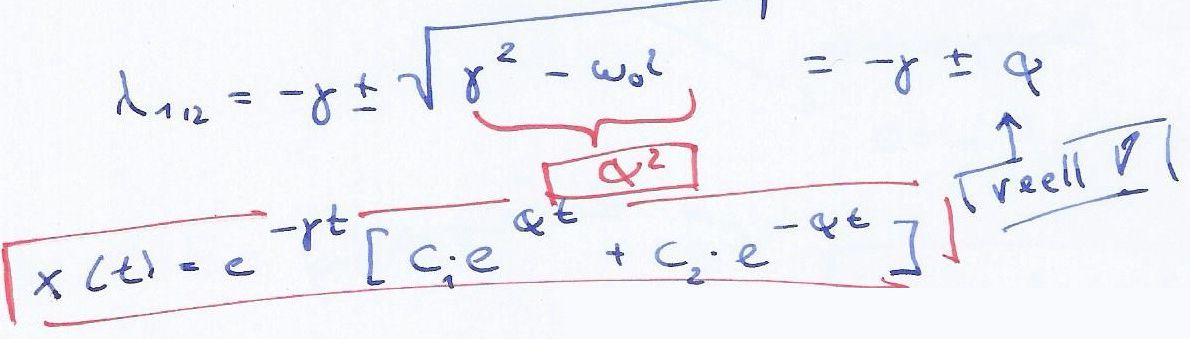 λ₁,₂ = -γ ± √(γ² - ω₀²) = -γ ± α
α²
reell !
x(t) = e^(-γt) [C₁e^(αt) + C₂·e^(-αt)]